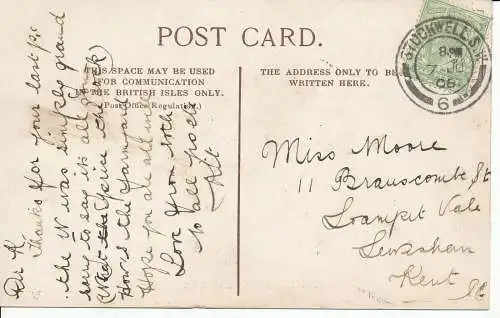 POST CARD.
THIS SPACE MAY BE USED
FOR COMMUNICATION
IN THE BRITISH ISLES ONLY.
(Post Office Regulation).
THE ADDRESS ONLY TO BE
WRITTEN HERE.
STOCKWELL S.W.
8 PM
JU
06
6
Dr K.
Thanks for your last p.c
the W was simply grand
sorry to say it's all
(What the price the
How's the Yarm and
Hope you are all
Love from both
to all
Kit
Miss Moore
11 Branscombe St
Loampit Vale
Lewisham
Kent